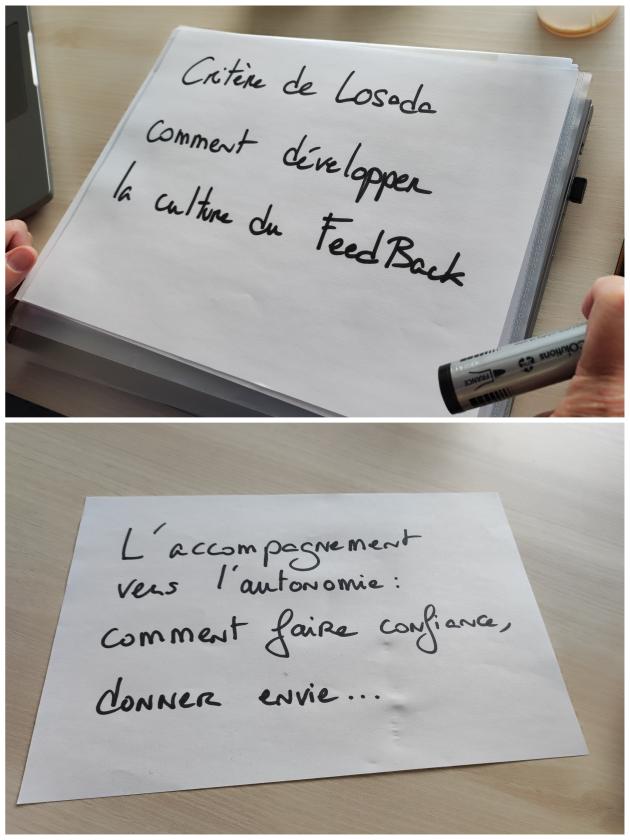 Critère de Losada
comment développer
la culture du FeedBack
Solutions
FRANCE
L'accompagnement
vers l'autonomie :
comment faire confiance,
donner envie...